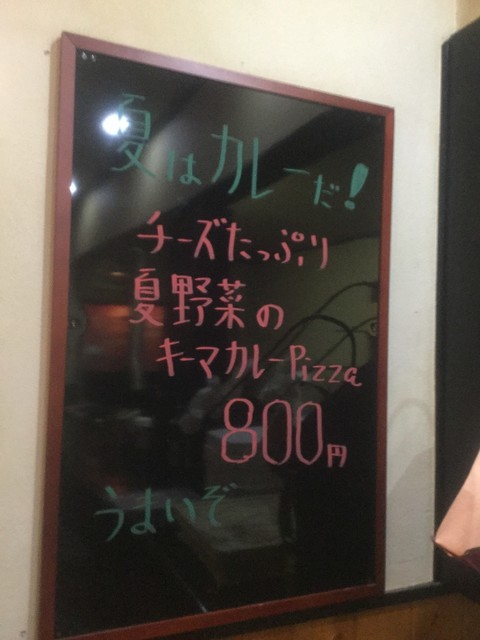 夏はカレーだ!
チーズたっぷり
夏野菜の
キーマカレーPizza
800円
うまいぞ